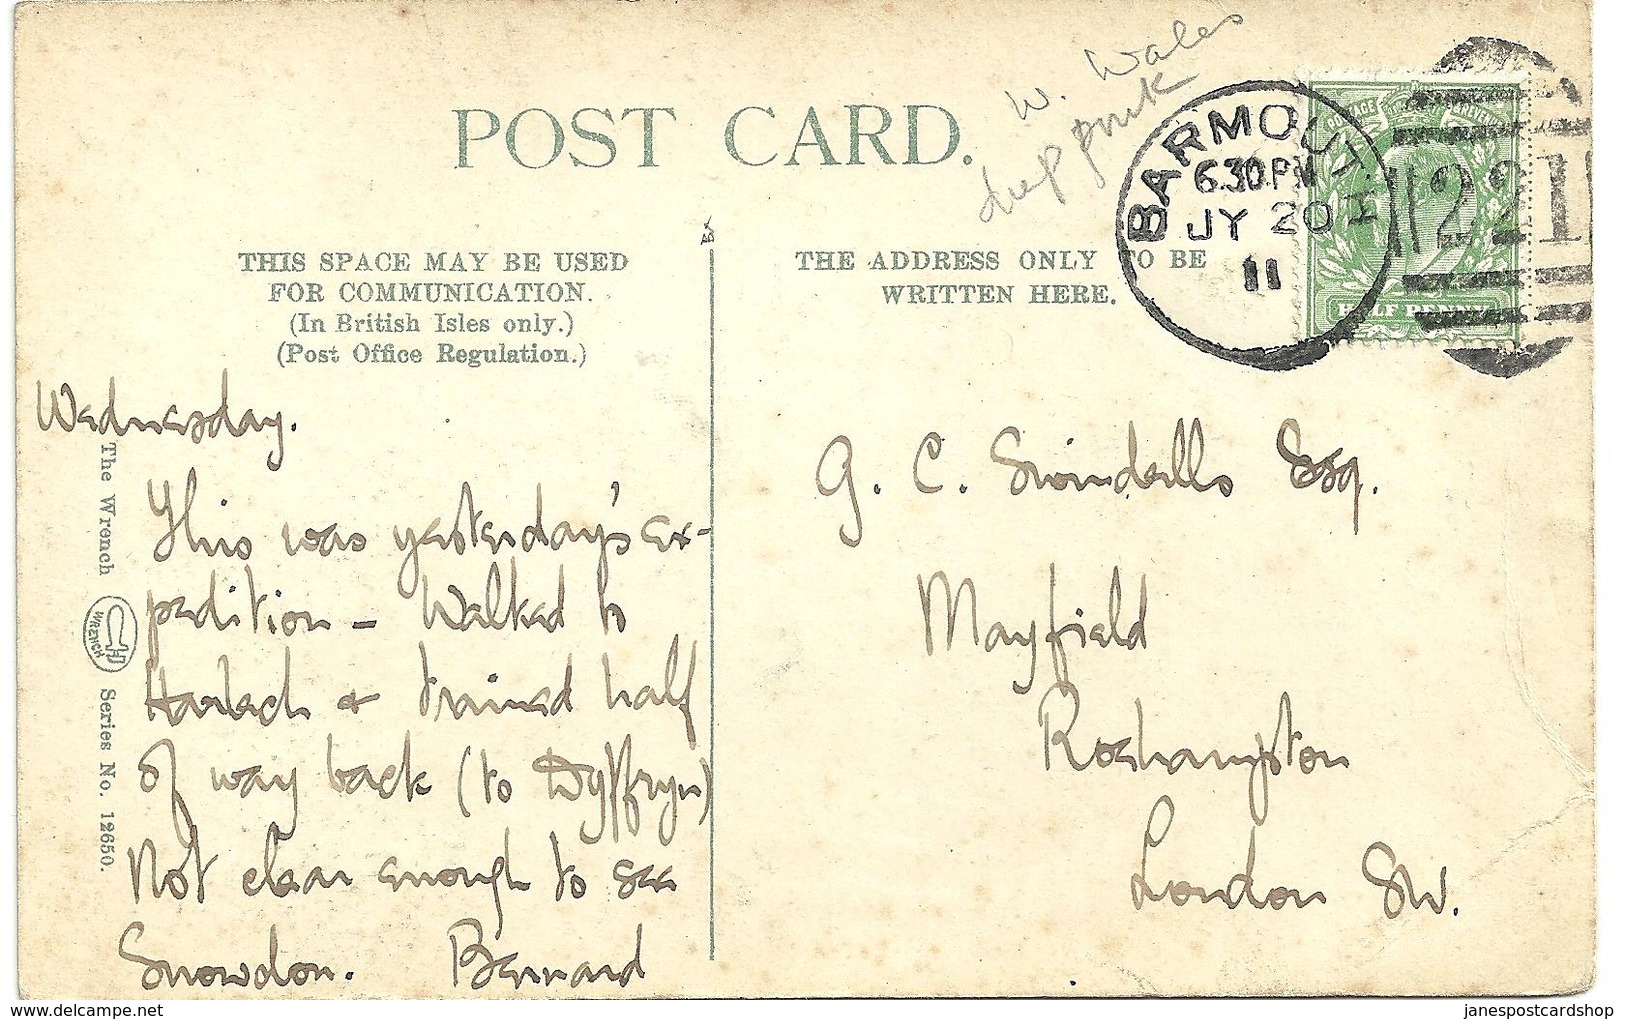 W. Wales
POST CARD.
BARMOUTH
6.30PM
JY 20
11
POSTAGE REVENUE
221
HALF PENNY
THIS SPACE MAY BE USED
FOR COMMUNICATION.
(In British Isles only.)
(Post Office Regulation.)
THE ADDRESS ONLY TO BE
WRITTEN HERE.
Wednesday.
This was yesterday's ex-
pedition – Walked to
Harlech & trained half
of way back (to Dyffryn)
Not clear enough to see
Snowdon. Bernard
The Wrench
WRENCH
Series No. 12650.
G. C. Swindells Esq.
Mayfield
Roehampton
London SW.
delcampe.net
janespostcardshop